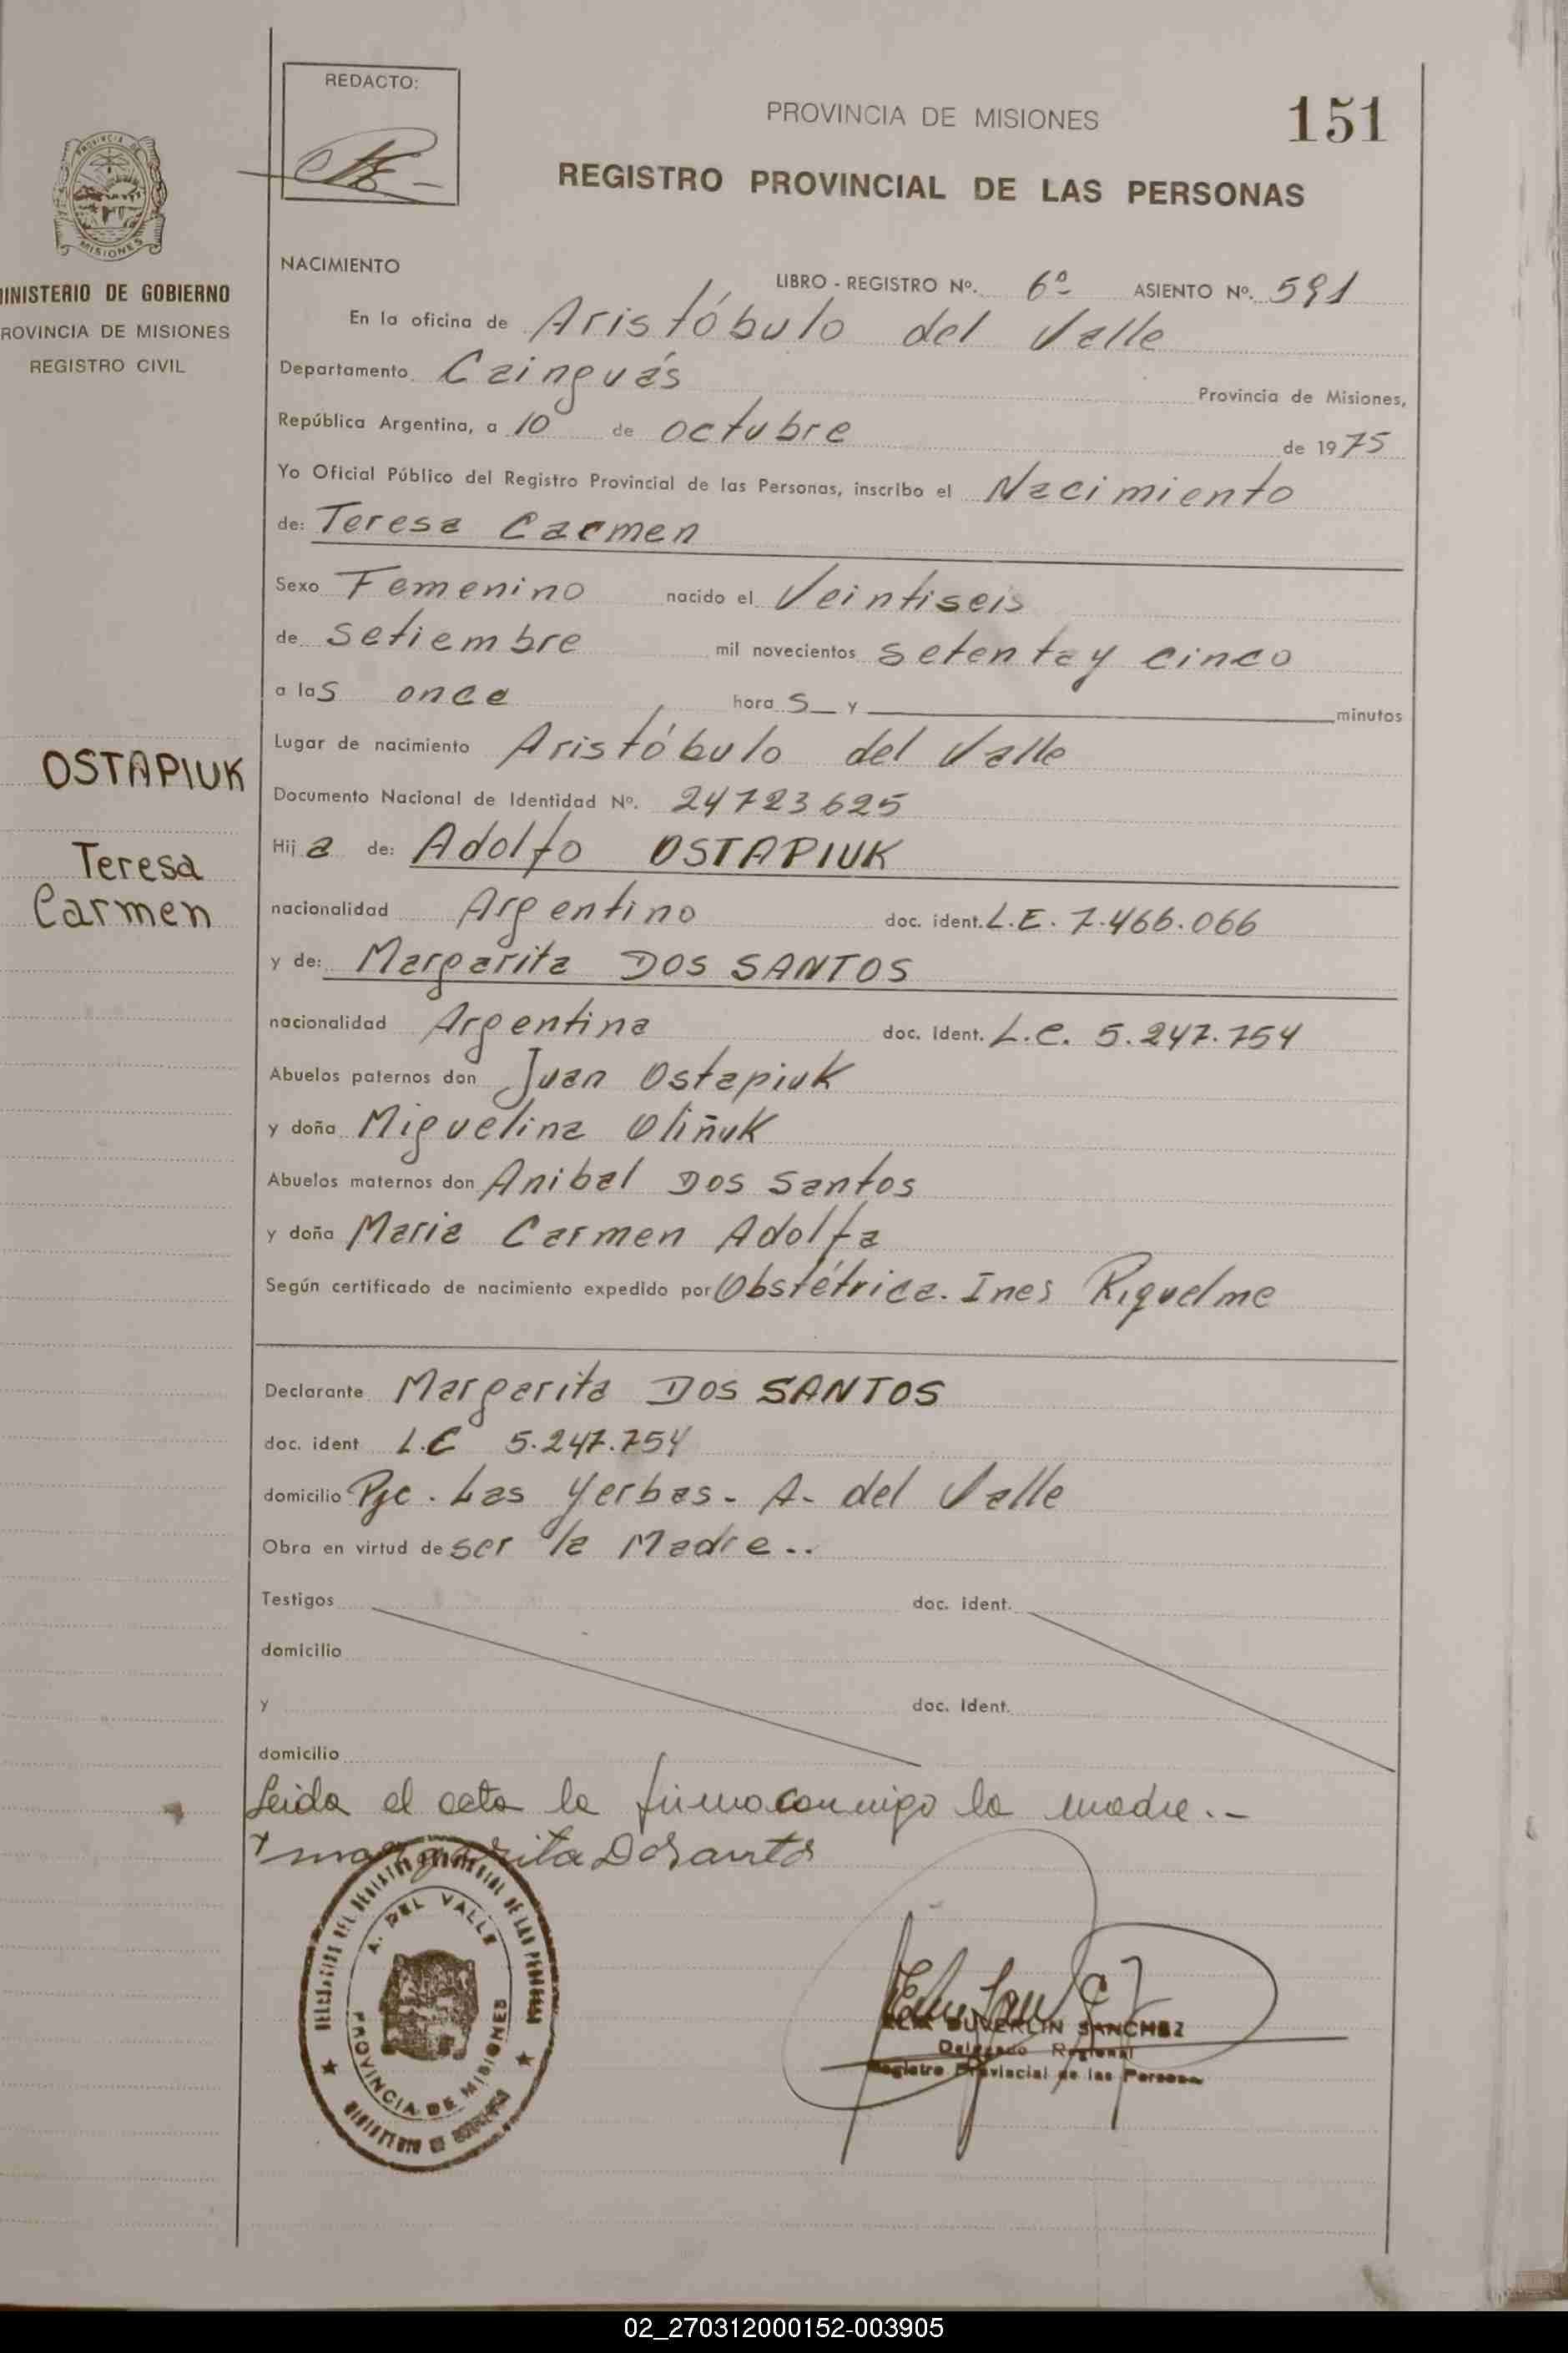 REDACTO:
PROVINCIA DE MISIONES
151
REGISTRO PROVINCIAL DE LAS PERSONAS
PROVINCIA DE
MISIONES
MINISTERIO DE GOBIERNO
PROVINCIA DE MISIONES
REGISTRO CIVIL
NACIMIENTO
LIBRO - REGISTRO Nº. 6º ASIENTO Nº. 591
En la oficina de Aristóbulo del Valle
Departamento Cainguás Provincia de Misiones,
República Argentina, a 10 de octubre de 1975
Yo Oficial Público del Registro Provincial de las Personas, inscribo el Nacimiento
de: Teresa Carmen
Sexo Femenino nacido el Veintiseis
de setiembre mil novecientos setenta y cinco
a las once horas y minutos
Lugar de nacimiento Aristóbulo del Valle
OSTAPIUK
Teresa
Carmen
Documento Nacional de Identidad Nº. 24723625
Hija de: Adolfo OSTAPIUK
nacionalidad Argentino doc. ident. L.E. 7.466.066
y de: Margarita DOS SANTOS
nacionalidad Argentina doc. Ident. L.C. 5.247.754
Abuelos paternos don Juan Ostapiuk
y doña Miguelina Oliñuk
Abuelos maternos don Anibal Dos Santos
y doña Maria Carmen Adolfa
Según certificado de nacimiento expedido por Obstétrica. Ines Riquelme
Declarante Margarita DOS SANTOS
doc. ident L.C 5.247.754
domicilio Pje. Las Yerbas- A. del Valle
Obra en virtud de ser la Madre..
Testigos doc. ident.
domicilio
y doc. Ident.
domicilio
Leida el acta la firma conmigo la madre.-
x margarita Dosantos
DEL REGISTRO PROVINCIAL DE LAS PERSONAS
A. DEL VALLE
PROVINCIA DE MISIONES
SANCHEZ
Delegado Regional
Registro Provincial de las Personas
02_270312000152-003905